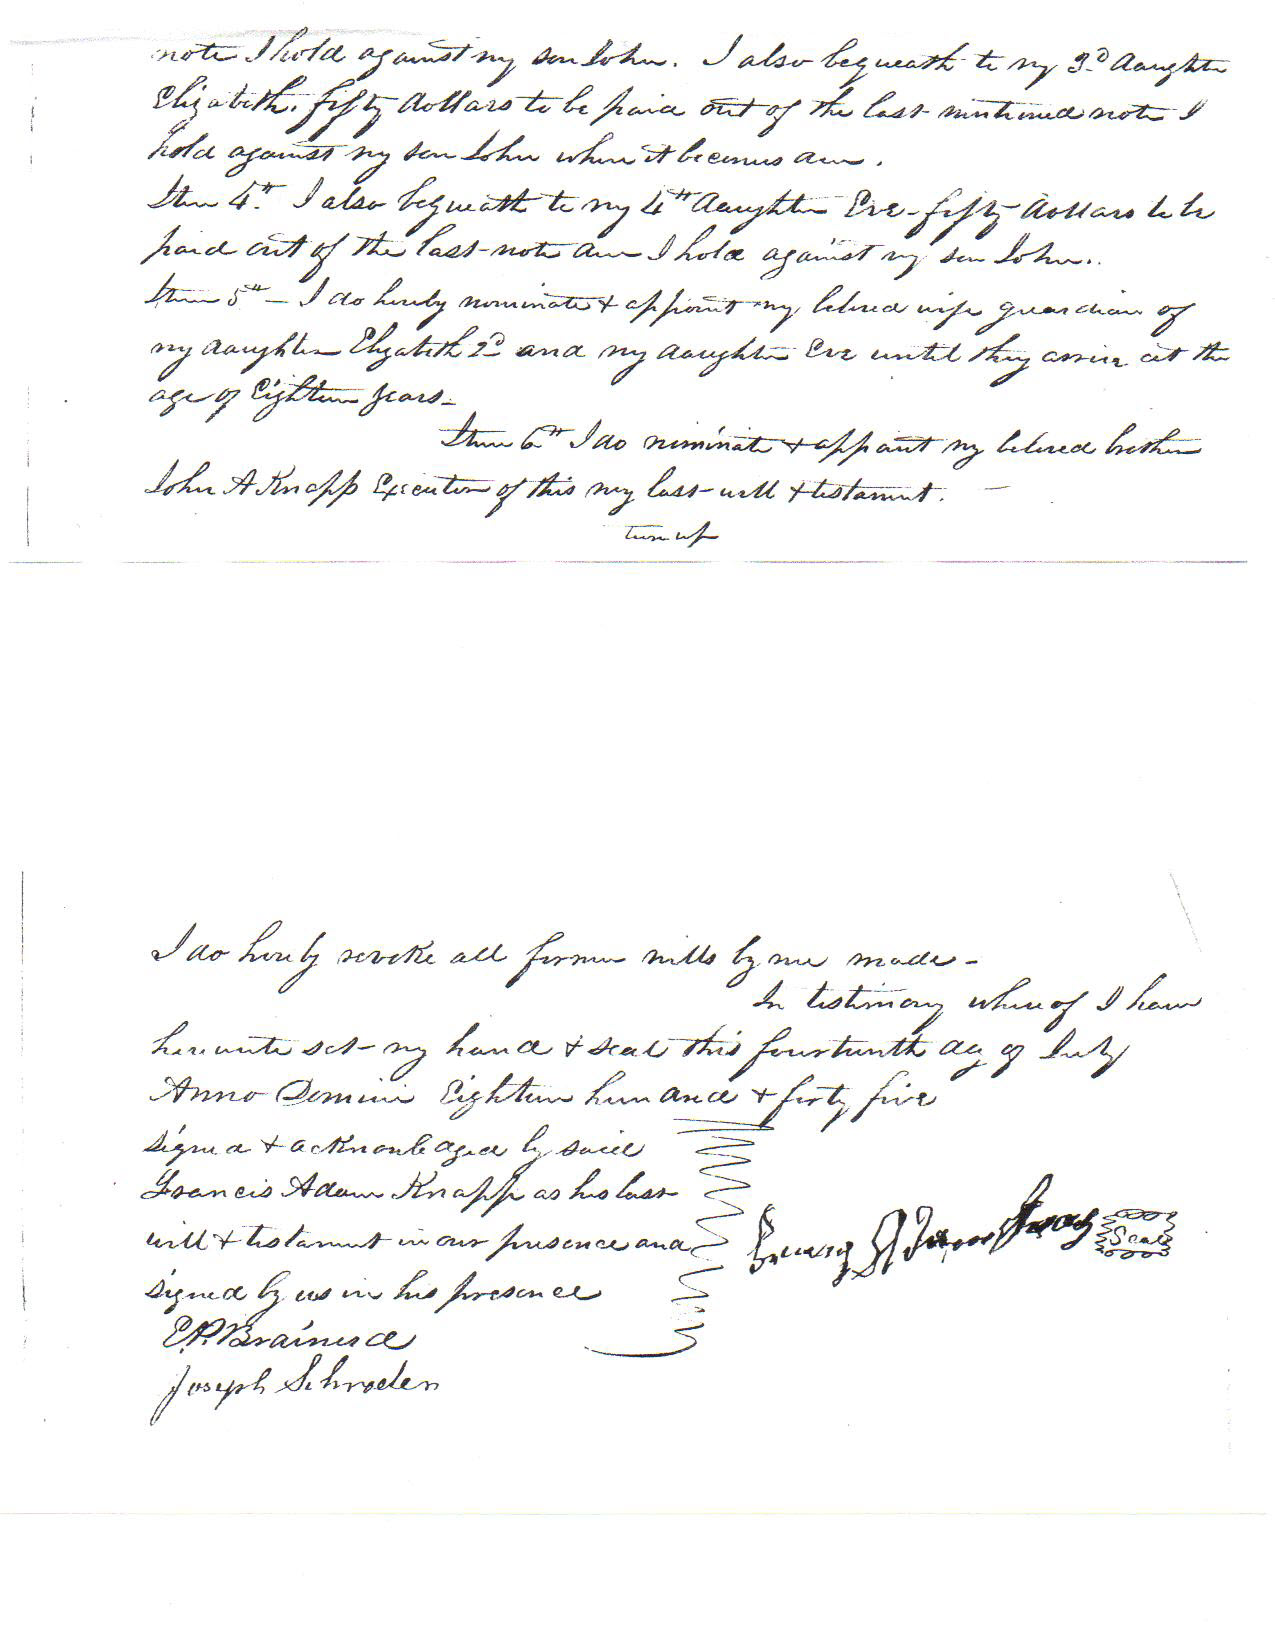 note I hold against my son John. I also bequeath to my 3d daughter
Elizabeth. fifty dollars to be paid out of the last mentioned note I
hold against my son John when it becomes due.
Item 4th. I also bequeath to my 4th daughter Eve - fifty dollars to be
paid out of the last note due I hold against my son John..
Item 5th - I do hereby nominate & appoint my beloved wife guardian of
my daughter Elizabeth 2d and my daughter Eve until they arrive at the
age of Eighteen years -
Item 6th I do nominate & appoint my beloved brother
John A Knapp Executor of this my last will & testament. -
turn up
I do hereby revoke all former wills by me made -
In testimony whereof I have
hereunto set my hand & seal this fourteenth day of July
Anno Domini Eighteen hundred & forty five
signed & acknowledged by said
Francis Adam Knapp as his last
will & testament in our presence and
signed by us in his presence
Seal
E.P. Brainerd
Joseph Schroden